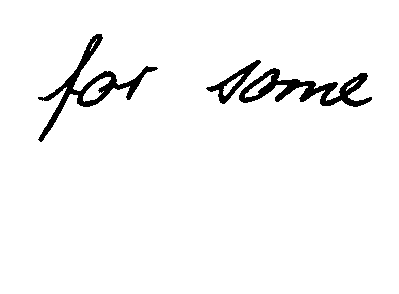 for some